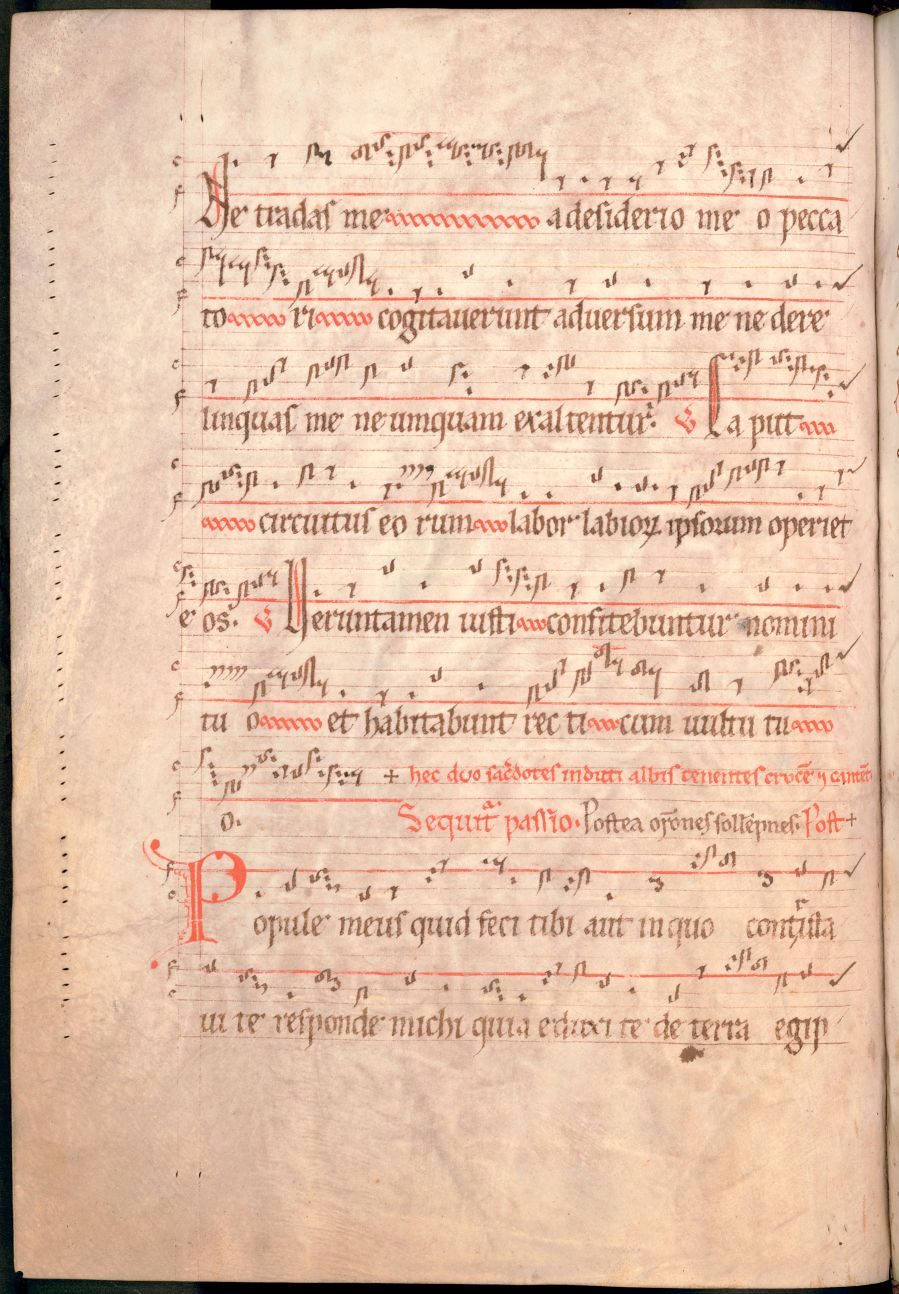 Ne tradas me a desiderio me o pecca
to ri cogitauerunt aduersum me ne dere
linquas me ne umquam exaltentur. V Ca put
circuitus eo rum labor labioꝝ ipsorum operiet
e os. V Veruntamen iusti confitebuntur nomini
tu o et habitabunt rec ti cum uultu tu
+ hec duo sac̄dotes induti albis tenentes crucē
o. Sequit᷑ passio. Postea or̄ones soll̄epnes. Post +
Popule meus quid feci tibi aut in quo contrista
ui te responde michi quia eduxi te de terra egip